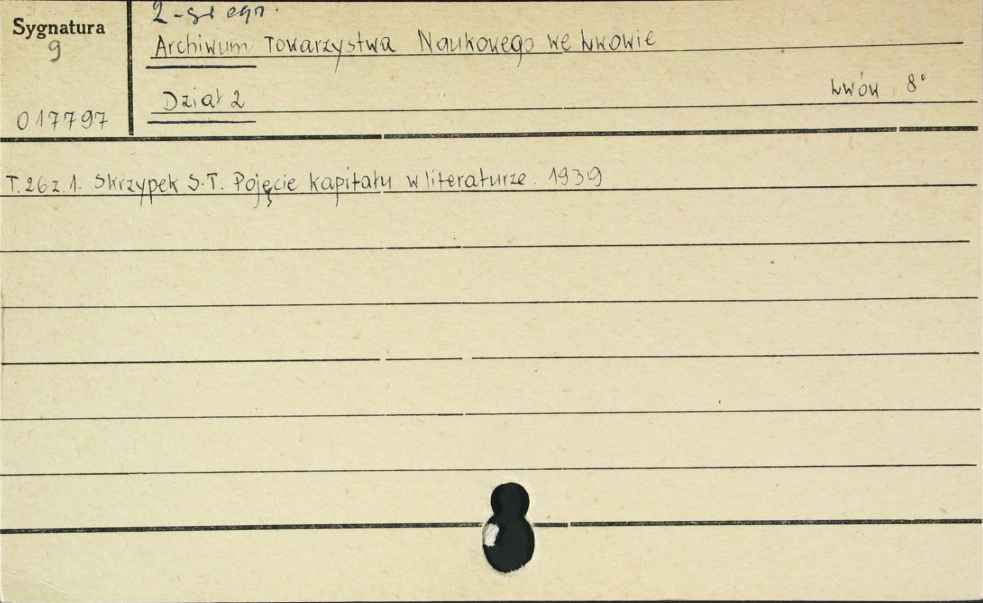 Sygnatura
9
017797
2-gi egz.
Archiwum Towarzystwa Naukowego we Lwowie
Dział 2
Lwów 8°
T. 26 z. 1. Skrzypek S.T. Pojęcie kapitału w literaturze. 1939